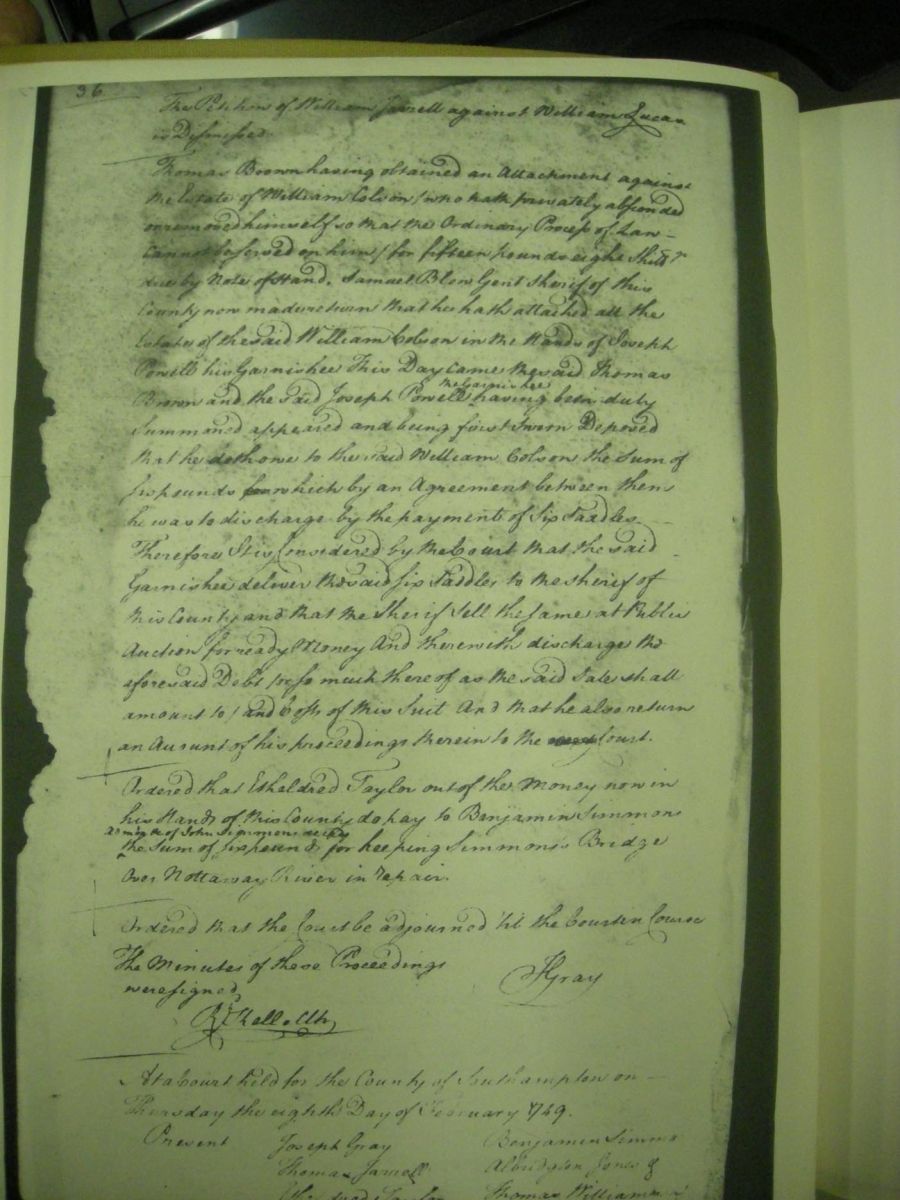 36
The Petition of William Jarrell against William Lucas
is Dismissed.
Thomas Brown having obtained an Attachment against
the Estate of William Colson (who hath privately absconded
or removed himself so that the Ordinary Process of Law
cannot be served on him) for fifteen pounds eight Shills
due by Note of Hand. Samuel Blow Gent Sherif of this
County now made return that he hath attached all the
Estate of the said William Colson in the Hands of Joseph
Powell his Garnishee This Day came the said Thomas
Brown and the said Joseph Powell the Garnishee having been duly
Summoned appeared and being first Sworn Deposed
that he doth owe to the said William Colson the Sum of
six pounds which by an Agreement between them
he was to discharge by the payment of Six Saddles
Therefore It is Considered by the Court that the said
Garnishee deliver the said six Saddles to the Sherif of
this County and that the Sherif Sell the same at Public
Auction for ready Money And therewith discharge the
aforesaid Debt (or so much thereof as the said Sale shall
amount to) and Costs of this Suit And that he also return
an Account of his proceedings therein to the Court.
Ordered that Etheldred Taylor out of the Money now in
his Hands of this County do pay to Benjamin Simmons
Admr of John Simmons decd
the Sum of six pounds for keeping Simmons's Bridge
Over Nottaway River in repair.
Ordered that the Court be adjourned 'til the Court in Course
The Minutes of these Proceedings
were signed
JGray
Rd Kello Clk
At a Court held for the County of Southampton on
Thursday the eighth Day of February 1749.
Present Joseph Gray Benjamin Simmo
Thomas Jarrell Albridgton Jones &
Thomas William